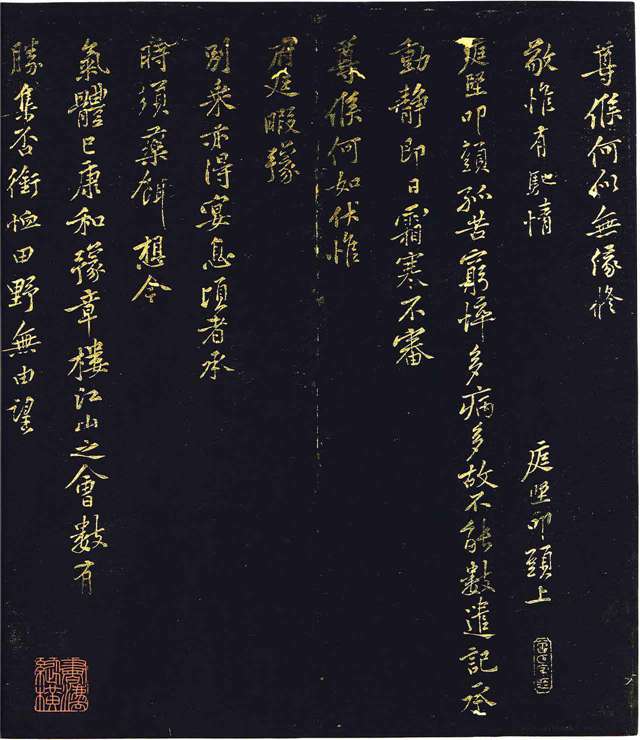 尊候何似無緣脩
敬惟有馳情
庭堅叩頭上
庭堅叩頭孤苦窮悴多病多故不能數遣記承
動靜即日霜寒不審
尊候何如伏惟
府廷暇豫
別來亦得宴息頃者承
時須藥餌想今
氣體已康和豫章樓江山之會數有
勝集否銜恤田野無由望